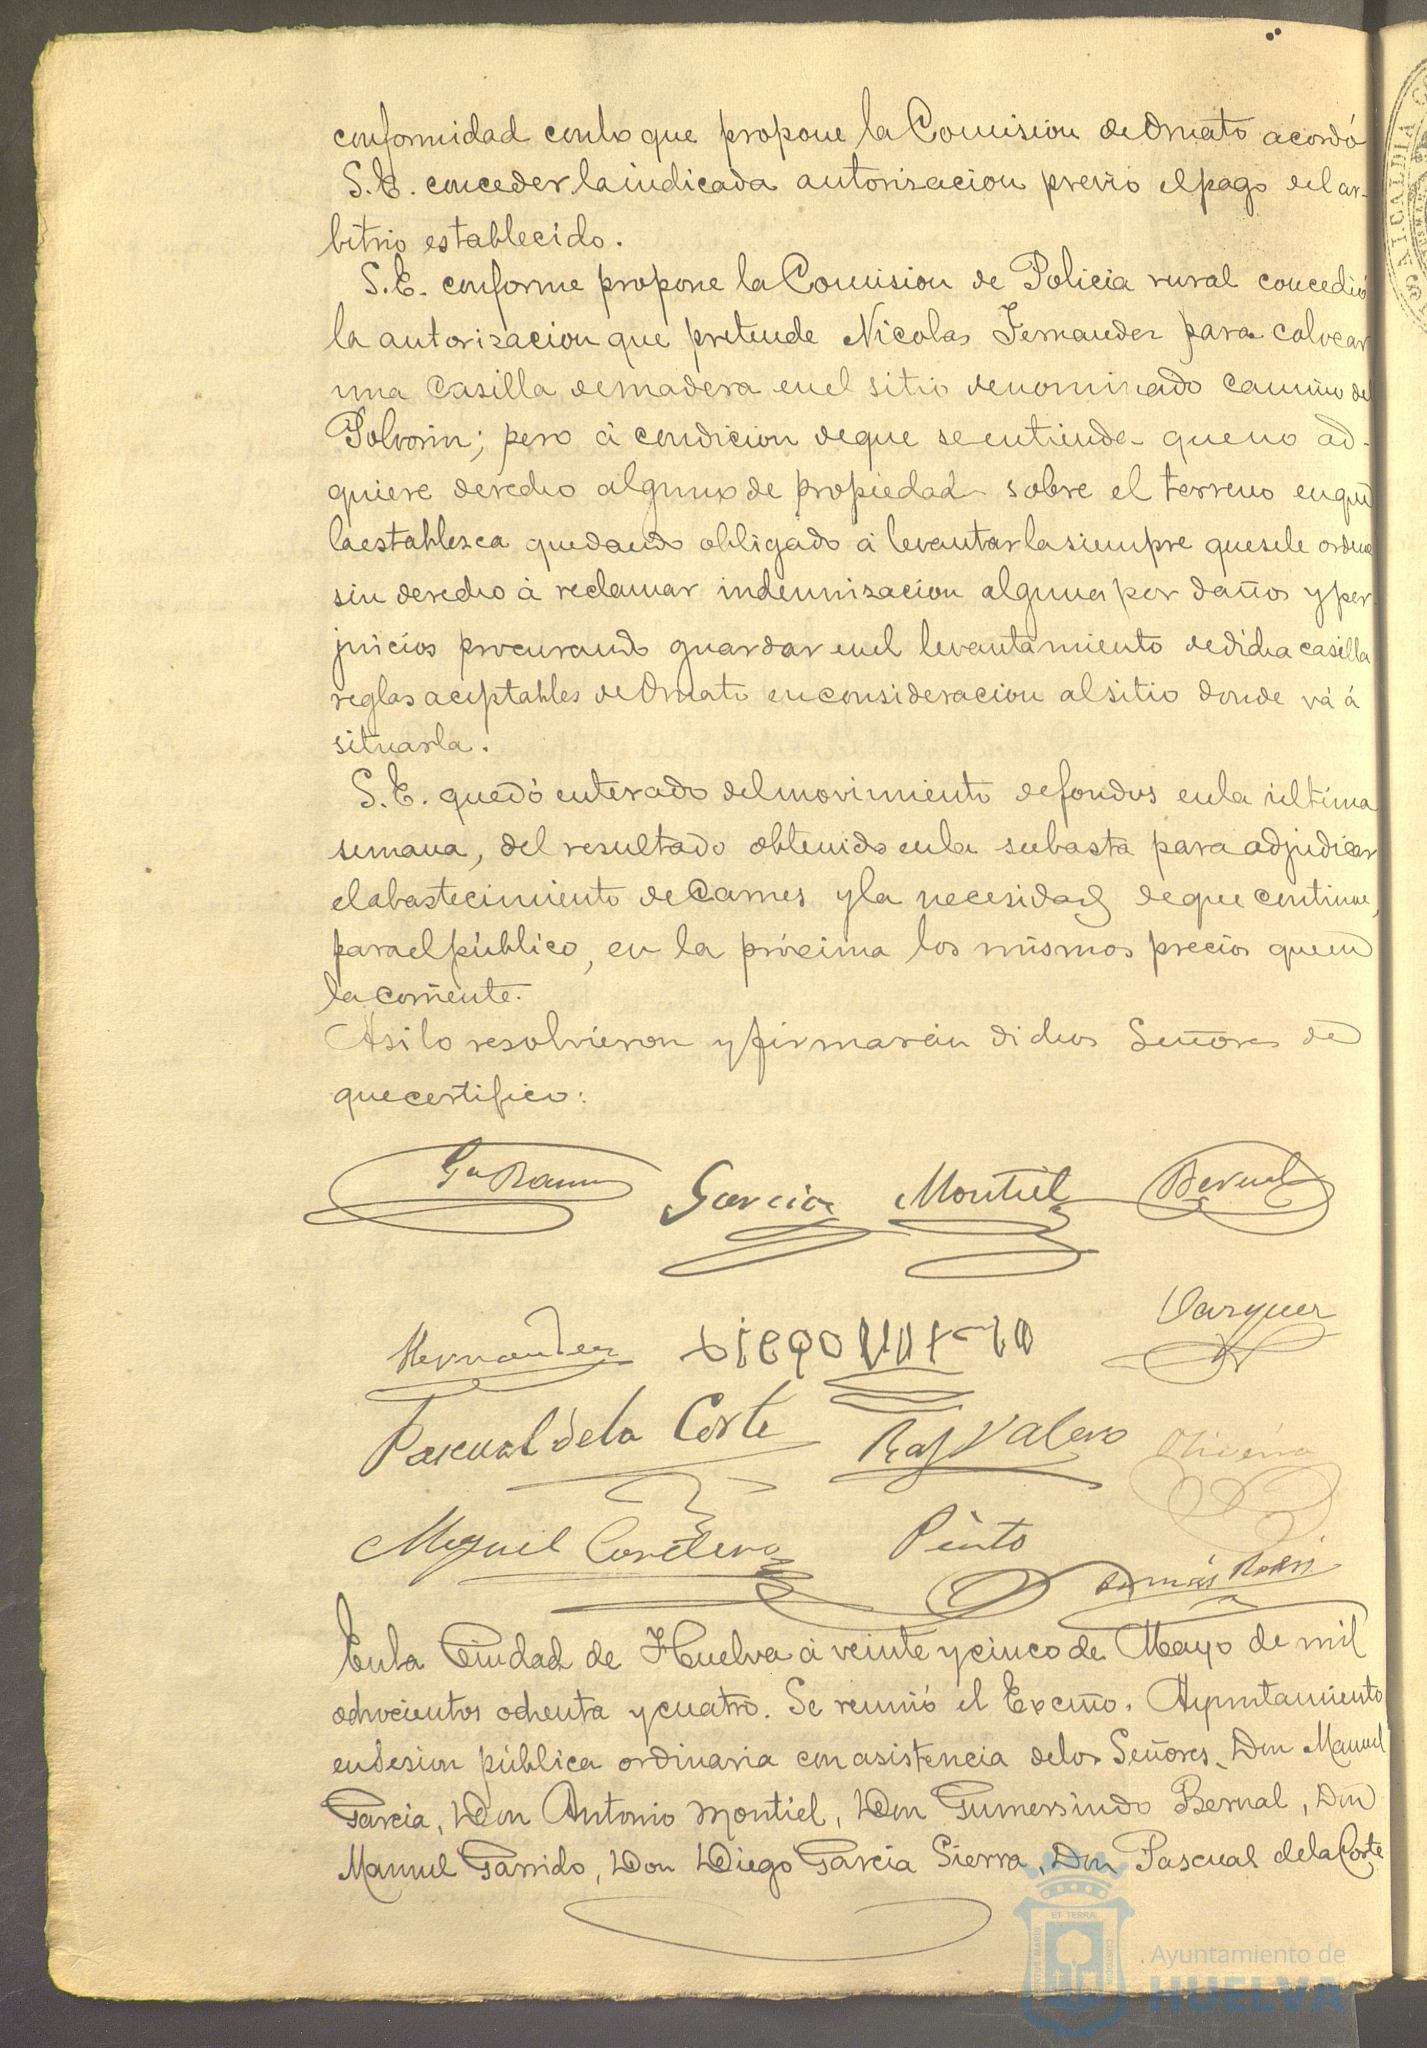 conformidad con lo que propone la Comision de Ornato acordó
S.E. conceder la indicada autorizacion previo el pago del ar-
bitrio establecido.
S.E. conforme propone la Comision de Policia rural concedió
la autorizacion que pretende Nicolas Fernandez para colocar
una Casilla de madera en el sitio denominado camino del
Polvorin; pero á condicion de que se entienda que no ad-
quiere derecho alguno de propiedad sobre el terreno en que
la establezca quedando obligado á levantarla siempre que se le ordene
sin derecho á reclamar indemnizacion alguna por daños y per-
juicios procurando guardar en el levantamiento de dicha casilla
reglas aceptables de Ornato en consideracion al sitio donde vá á
situarla.
S.E. quedó enterado del movimiento de fondos en la última
semana, del resultado obtenido en la subasta para adjudicar
el abastecimiento de Carnes y la necesidad de que continue,
para el público, en la próxima los mismos precios que en
la corriente.
Asi lo resolvieron y firmarán dichos Señores de
que certifico:
Garcia Montiel Bernal
Hernandez Diego Vazquez
Pascual de la Corte Raf Valero Oliveira
Miguel Cordero Pinto Tomás
En la Ciudad de Huelva á veinte y cinco de Mayo de mil
ochocientos ochenta y cuatro. Se reunió el Excmo. Ayuntamiento
en sesion pública ordinaria con asistencia de los Señores, Don Manuel
Garcia, Don Antonio Montiel, Don Gumersindo Bernal, Don
Manuel Garrido, Don Diego Garcia Sierra, Don Pascual de la Corte
ALCALDIA
Ayuntamiento de
HUELVA